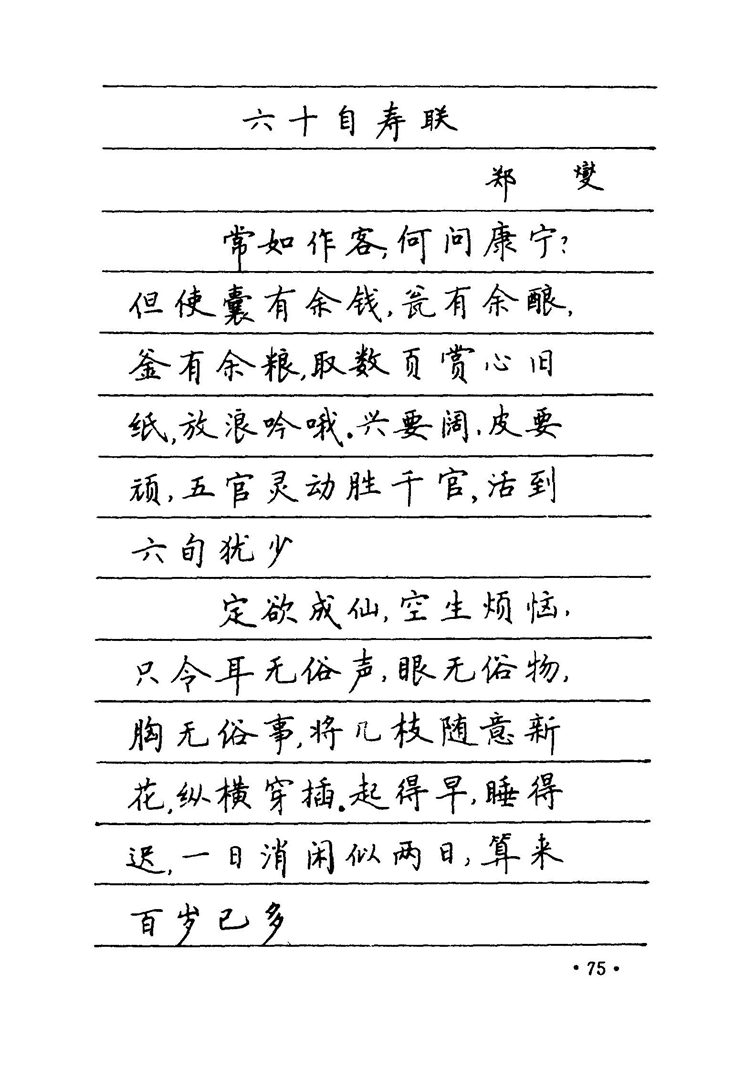 六十自寿联
郑 燮
常如作客,何问康宁?
但使囊有余钱,瓮有余酿,
釜有余粮,取数页赏心旧
纸,放浪吟哦。兴要阔,皮要
顽,五官灵动胜千官,活到
六旬犹少
定欲成仙,空生烦恼,
只令耳无俗声,眼无俗物,
胸无俗事,将几枝随意新
花,纵横穿插。起得早,睡得
迟,一日消闲似两日,算来
百岁已多
·75·